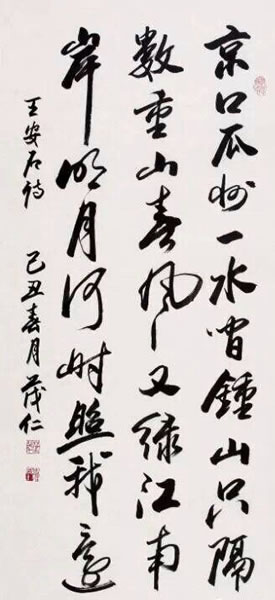 京口瓜州一水间钟山只隔
数重山春风又绿江南
岸明月何时照我还
王安石诗 己丑春月茂仁